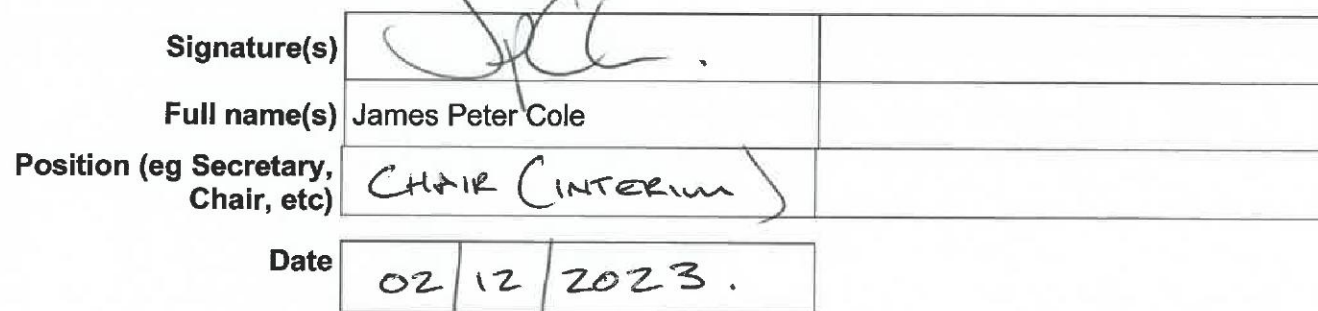 Signature(s)
Full name(s) James Peter Cole
Position (eg Secretary,
Chair, etc) CHAIR (INTERIM)
Date 02 12 2023.